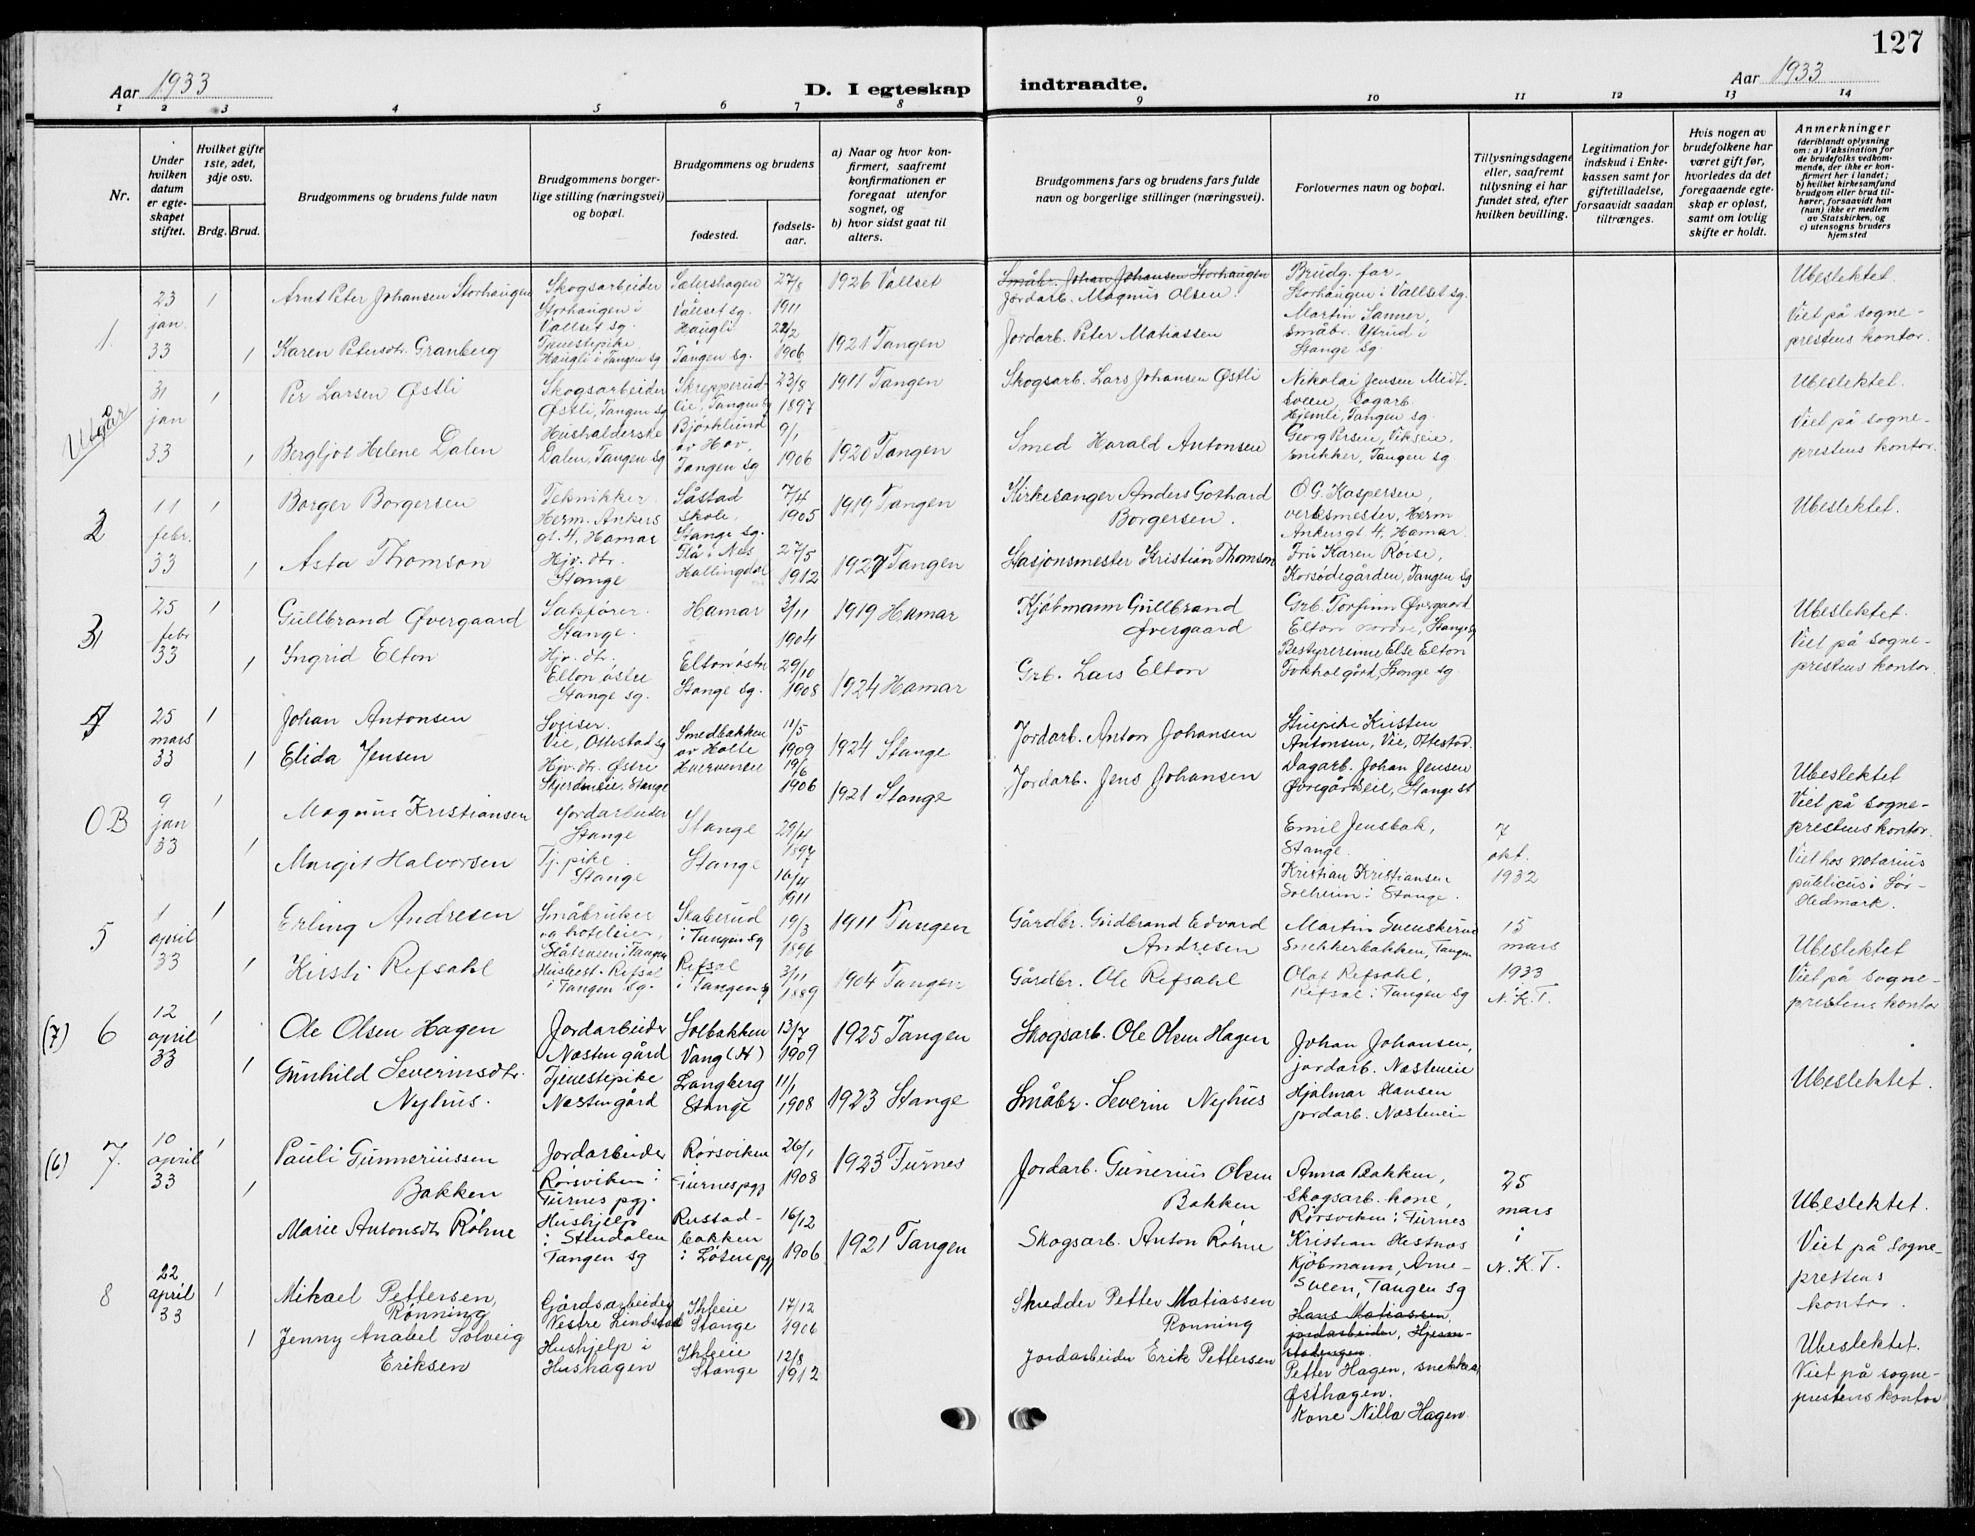 127
Aar 1933 D. I egteskap indtraadte. Aar 1933
1 2 3 4 5 6 7 8 9 10 11 12 13 14
Nr.
Under hvilken datum er egte-skapet stiftet.
Hvilket gifte 1ste, 2det, 3dje osv.
Brdg. Brud.
Brudgommens og brudens fulde navn
Brudgommens borger-lige stilling (næringsvei) og bopæl.
Brudgommens og brudens
fødested.
fødsels-aar.
a) Naar og hvor kon-firmert, saafremt konfirmationen er foregaat utenfor sognet, og
b) hvor sidst gaat til alters.
Brudgommens fars og brudens fars fulde navn og borgerlige stillinger (næringsvei).
Forlovernes navn og bopæl.
Tillysningsdagene eller, saafremt tillysning ei har fundet sted, efter hvilken bevilling.
Legitimation for indskud i Enke-kassen samt for giftetilladelse, forsaavidt saadan tiltrænges.
Hvis nogen av brudefolkene har været gift før, hvorledes da det foregaaende egte-skap er opløst, samt om lovlig skifte er holdt.
Anmerkninger (deriblandt oplysning om: a) Vaksination for de brudefolks vedkom-mende, der ikke er kon-firmert her i landet; b) hvilket kirkesamfund brudgom eller brud til-hører, forsaavidt han (hun) ikke er medlem av Statskirken, og c) utensogns bruders hjemsted
1. 23 jan. 33
1 Arnt Peter Johansen Storhaugen
Skogsarbeider Storhaugen i Vallset sg.
Sætershagen Vallset sg.
27/8 1911
1926 Vallset
Småbr. Johan Johansen Storhaugen
Jordarb. Magnus Olsen.
Brudg. far Storhaugen i Vallset sg.
Ubeslektet.
1 Karen Petersdtr. Granberg
Tjenestepike Haugli i Tangen sg
Haugli Tangen sg.
22/2 1906
1921 Tangen
Jordarb. Peter Matiassen
Martin Sanner, Småbr. Ytrud i Stange sg.
Viet på sogne-prestens kontor.
Utgår
31 jan 33
1 Per Larsen Østli
Skogsarbeider Østli, Tangen sg
Skrepperud-lie, Tangen sg
23/8 1897
1911 Tangen
Skogsarb. Lars Johansen Østli
Nikolai Jensen Midt-sveen, sagarb. Hjemli, Tangen sg.
Ubeslektet.
1 Bergljot Helene Dalen
Husholderske Dalen, Tangen sg
Bjørklund av Hov, Tangen sg
9/1 1906
1920 Tangen
Smed Harald Antonsen
Georg Persen, Vikseie, snikker, Tangen sg.
Viet på sogne-prestens kontor.
2 11 febr. 33
1 Borger Borgersen
Teknikker Herm. Ankers gt. 4, Hamar
Såstad skole, Stange sg.
7/4 1905
1919 Tangen
Kirkesanger Anders Gothard Borgersen.
O.G. Kaspersen, verksmester, Herm Ankersgt 4, Hamar.
Ubeslektet.
1 Asta Thomson
Hjv. dtr. Stange
Flå i Nes Hallingdal
27/5 1912
1927 Tangen
Stasjonsmester Kristian Thomson
Fru Karen Rørse, Korsødegården, Tangen sg
3 25 febr 33
1 Gullbrand Øvergaard
Sakfører. Stange.
Hamar
3/11 1904
1919 Hamar
Kjøbmann Gullbrand Øvergaard
Grb. Torfinn Øvergaard Elton nordre, Stange sg
Ubeslektet.
1 Ingrid Elton
Hjv. dtr. Elton østre Stange sg.
Elton østre Stange sg.
29/10 1908
1924 Hamar
Grb. Lars Elton
Bestyrerinne Else Elton Fokhol gård, Stange sg.
Viet på sogne-prestens kontor.
4 25 mars 33
1 Johan Antonsen
Sveiser. Vie, Ottestad sg
Smedbakken av Holte
11/5 1909
1924 Stange
Jordarb. Anton Johansen
Stuepike Kirsten Antonsen, Vie, Ottestad.
1 Elida Jensen
Hjv. dtr. Østre Skjerdeneie, Stange
19/6 1906
1921 Stange
Jordarb. Jens Johansen
Dagarb. Johan Jensen Øvregårdseie, Stange st
Ubeslektet
Viet på sogne-prestens kontor.
OB 9 jan 33
1 Magnus Kristiansen
Jordarbeider Stange
Stange
29/4 1897
Emil Jensbak, Stange.
7 okt. 1932
1 Margit Halvorsen
Tj.pike. Stange
Stange
16/4 1911
Kristian Kristiansen Solheim i Stange.
Viet hos notarius publicus i Sør-Hedmark.
5 1 april 33
1 Erling Andresen
Småbruker og hoteleier, i Tangen
Skaberud i Tangen sg
19/3 1896
1911 Tangen
Gårdbr. Gudbrand Edvard Andresen
Martin Svenskerud Snekkerbakken, Tangen
15 mars 1933 N.K.T.
Ubeslektet
1 Kirsti Refsahl
Husbest. Refsal i Tangen sg.
Refsal i Tangen sg
3/11 1889
1904 Tangen
Gårdbr. Ole Refsahl
Olaf Refsahl, Refsal i Tangen sg
Viet på sogne-prestens kontor
(7) 6 12 april 33
1 Ole Olsen Hagen
Jordarbeider Næsten gård
Solbakken Vang (H)
13/7 1909
1925 Tangen
Skogsarb. Ole Olsen Hagen
Johan Johansen, jordarb. Næsteneie
1 Gunhild Severinsdtr. Nyhus.
Tjenestepike Næsten gård
Langberg Stange
11/1 1908
1923 Stange
Småbr. Severin Nyhus
Hjalmar Hansen jordarb. Næsteneie
Ubeslektet.
(6) 7. 10 april 33
1 Pauli Gunneriussen Bakken
Jordarbeider Rørsviken i Furnes pgj.
Rørsviken i Furnes pgj
26/1 1908
1923 Furnes
Jordarb. Gunerius Olsen Bakken
Anna Bakken, Skogsarb. kone, Rørsviken i Furnes
25 mars i N.K.T.
Ubeslektet.
1 Marie Antonsdtr. Røhne
Hushjelp i Stendalen Tangen sg
Rustad-bakken i Løten pgj
16/12 1906
1921 Tangen
Skogsarb. Anton Røhne
Kristian Hestnæs Kjøbmann, Arne-sveen, Tangen sg
Viet på sogne-prestens kontor.
8 22 april 33
1 Mikael Pettersen, Rønning
Gårdsarbeider Vestre Lindstad
Ihleie Stange
17/12 1906
Skredder Petter Matiassen Rønning
Hans Matiassen, jordarbeider, Hjem-stadengen.
1 Jenny Anabel Solveig Eriksen
Hushjelp i Hushagen
Ihleie Stange
12/8 1912
Jordarbeider Erik Pettersen
Petter Hagen, snekker, Østhagen.
Kone Nilla Hagen
Ubeslektet.
Viet på sogne-prestens kontor